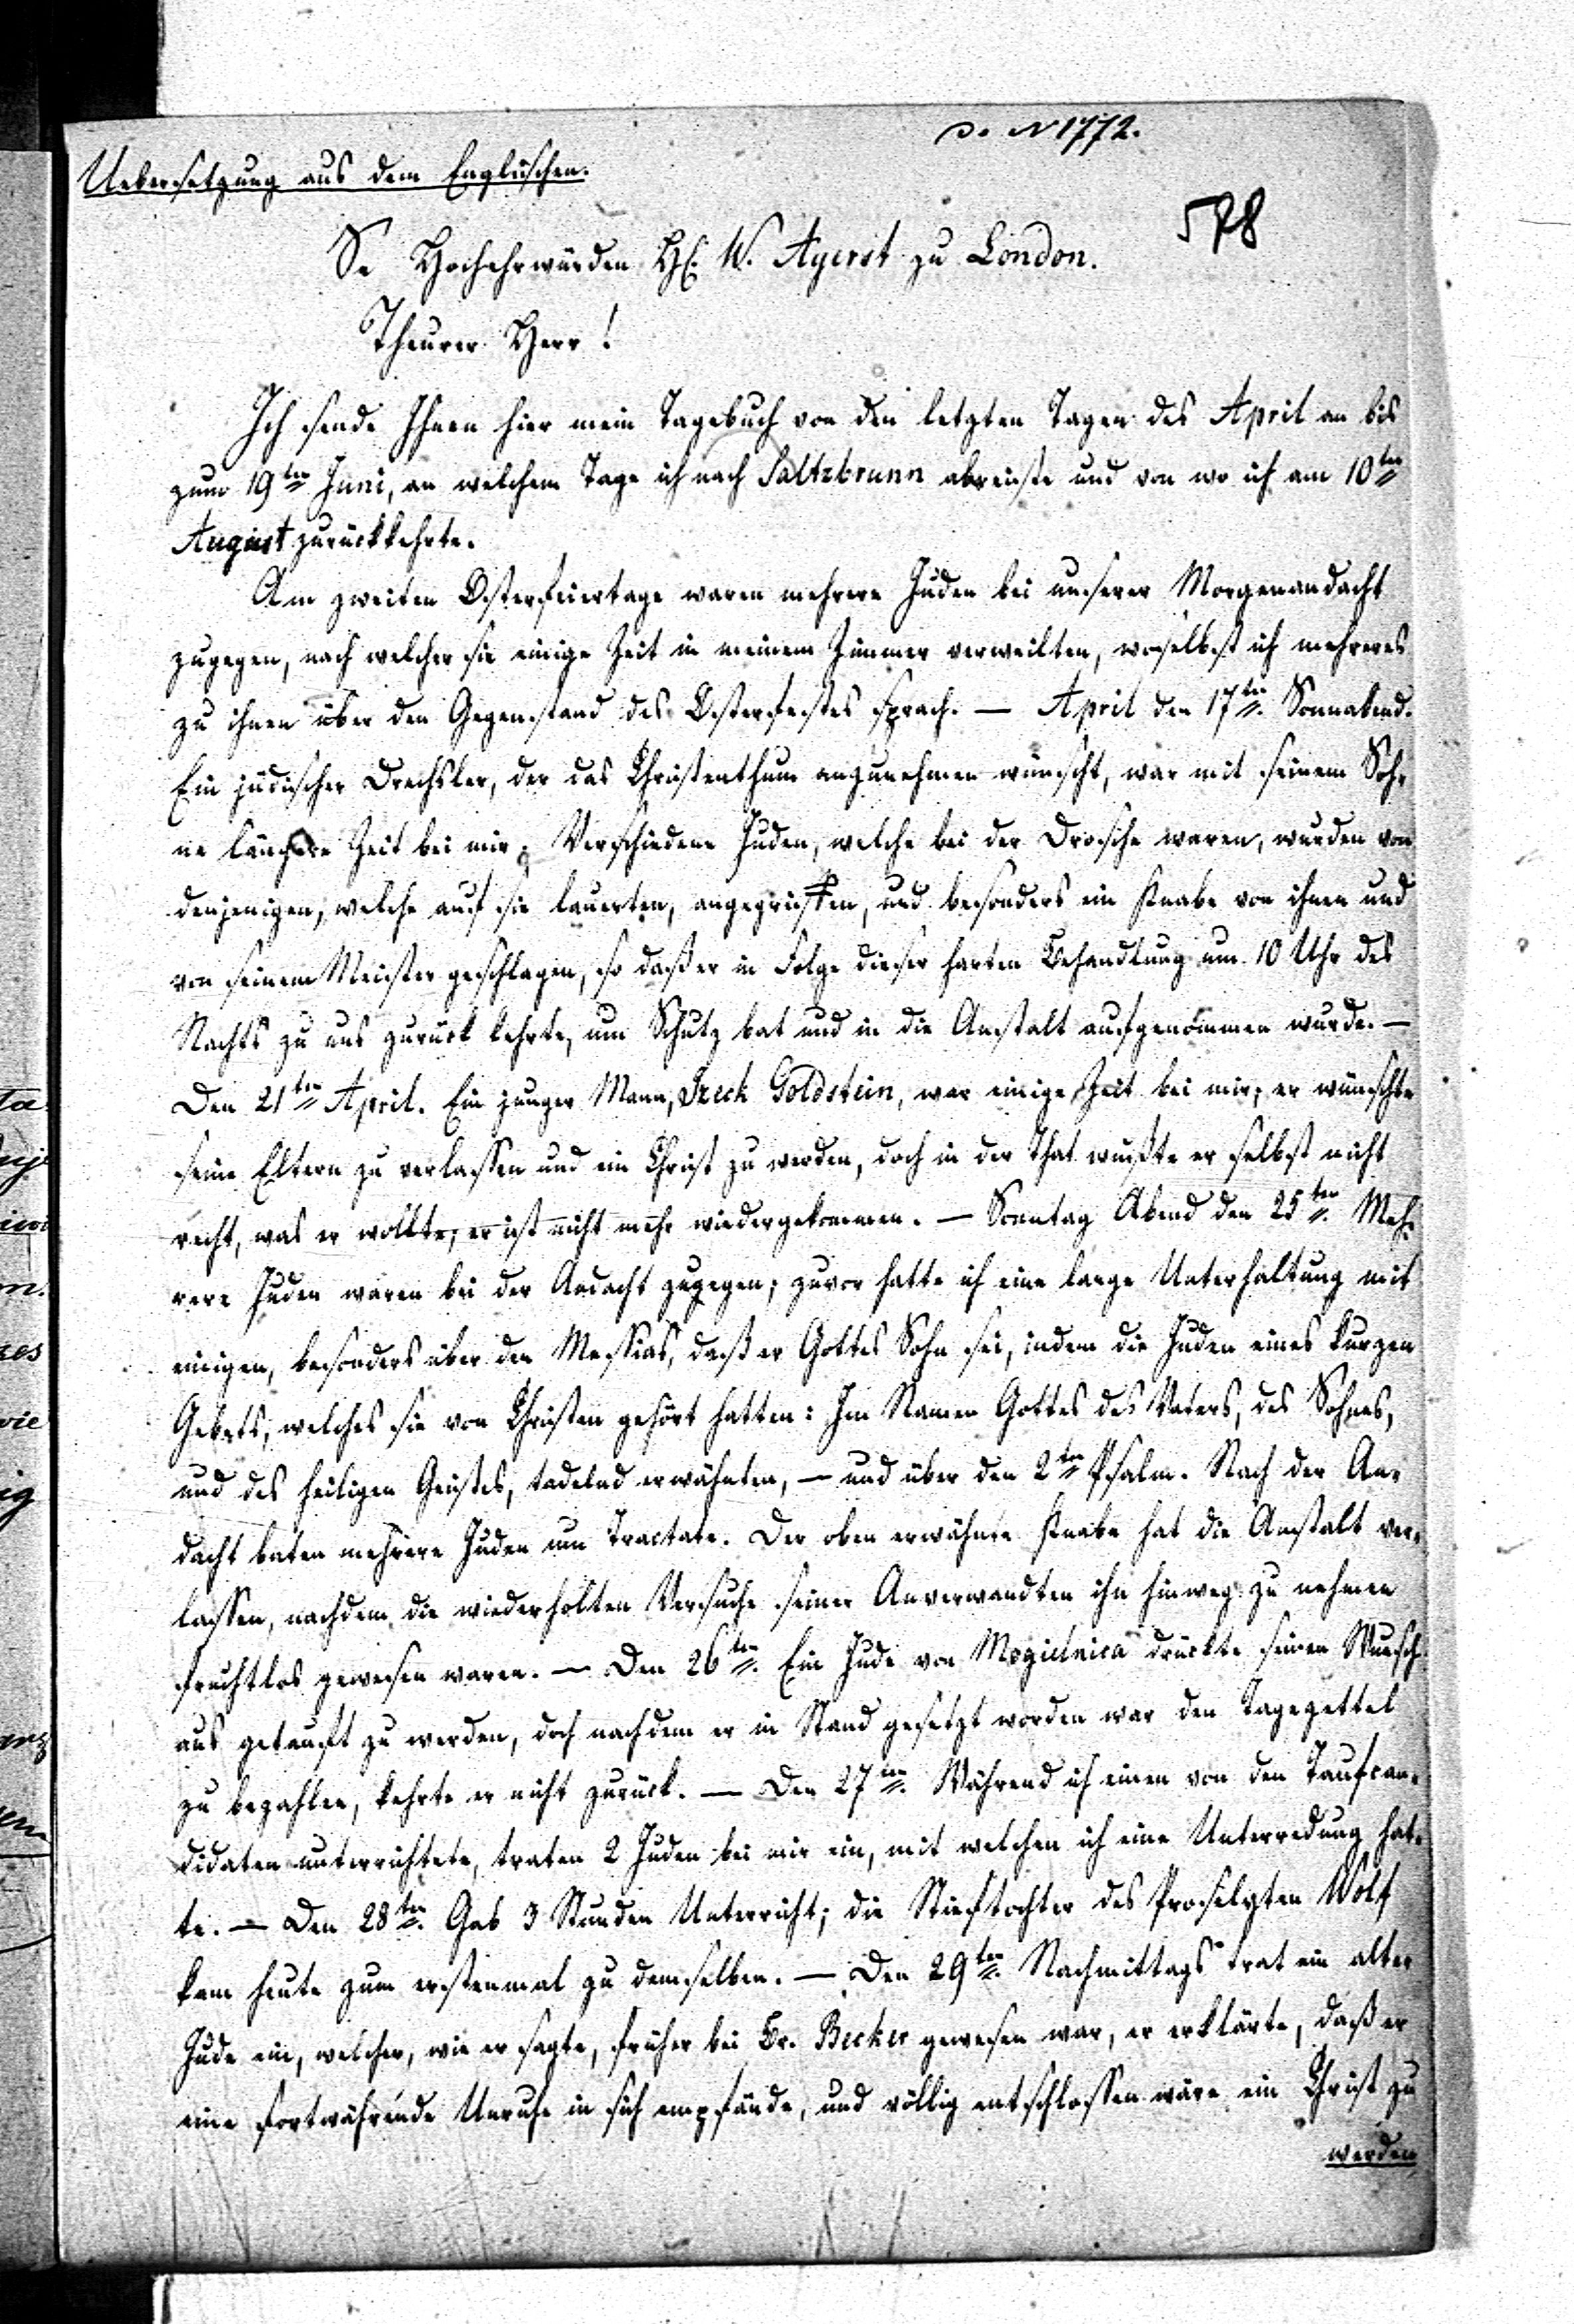 d. N 1772.
Uebersetzung aus dem Englischen.
578
Sr Hochehrwürden H. W. Ayerst zu London.
Theurer Herr!
Ich sende Ihnen hier mein Tagebuch von den letzten Tagen des April an bis
zum 19ten Juni, an welchem Tage ich nach Saltzbrunn abreiste und von wo ich am 10ten
August zurückkehrte.
Am zweiten Osterfeiertage waren mehrere Juden bei unserer Morgenandacht
zugegen, nach welcher sie einige Zeit in meinem Zimmer verweilten, woselbst ich mehreres
zu ihnen über den Gegenstand des Osterfestes sprach. — April den 17ten Sonnabend.
Ein jüdischer Drechsler, der das Christenthum anzunehmen wünscht, war mit seinem Soh-
ne längere Zeit bei mir; Verschiedene Juden, welche bei der Drosche waren, wurden von
denjenigen, welche auf sie lauerten, angegriffen, und besonders ein Knabe von ihnen und
von seinem Meister geschlagen, so daß er in Folge dieser harten Behandlung um 10 Uhr des
Nachts zu uns zurück kehrte, um Schutz bat und in die Anstalt aufgenommen wurde. —
Den 21ten April. Ein junger Mann, Izeck Goldstein, war einige Zeit bei mir; er wünschte
seine Eltern zu verlassen und ein Christ zu werden, doch in der That wußte er selbst nicht
recht, was er wollte; er ist nicht mehr wiedergekommen. — Sonntag Abend den 25ten Meh-
rere Juden waren bei der Andacht zugegen; zuvor hatte ich eine lange Unterhaltung mit
einigen, besonders über den Messias, daß er Gottes Sohn sei, indem die Juden eines kurzen
Gebets, welches sie von Christen gehört hatten: Im Namen Gottes des Vaters, des Sohnes,
und des heiligen Geistes, tadelnd erwähnten, — und über den 2ten Psalm. Nach der An-
dacht baten mehrere Juden um Tractate. Der oben erwähnte Knabe hat die Anstalt ver-
lassen, nachdem die wiederholten Versuche seiner Anverwandten ihn hinweg zu nehmen
fruchtlos gewesen waren. — Den 26ten Ein Jude von Mogielnica drückte seinen Wunsch
aus getauft zu werden, doch nachdem er in Stand gesetzt worden war den Tagezettel
zu bezahlen, kehrte er nicht zurück. — Den 27ten Während ich einen von den Taufcan-
didaten unterrichtete, traten 2 Juden bei mir ein, mit welchen ich eine Unterredung hat-
te. — Den 28ten Gab 3 Stunden Unterricht; die Stieftochter des Proselyten Wolf
kam heute zum erstenmal zu demselben. — Den 29ten Nachmittags trat ein alter
Jude ein, welcher, wie er sagte, früher bei Br. Becker gewesen war, er erklärte, daß er
eine fortwährende Unruhe in sich empfände, und völlig entschlossen wäre ein Christ zu
werden